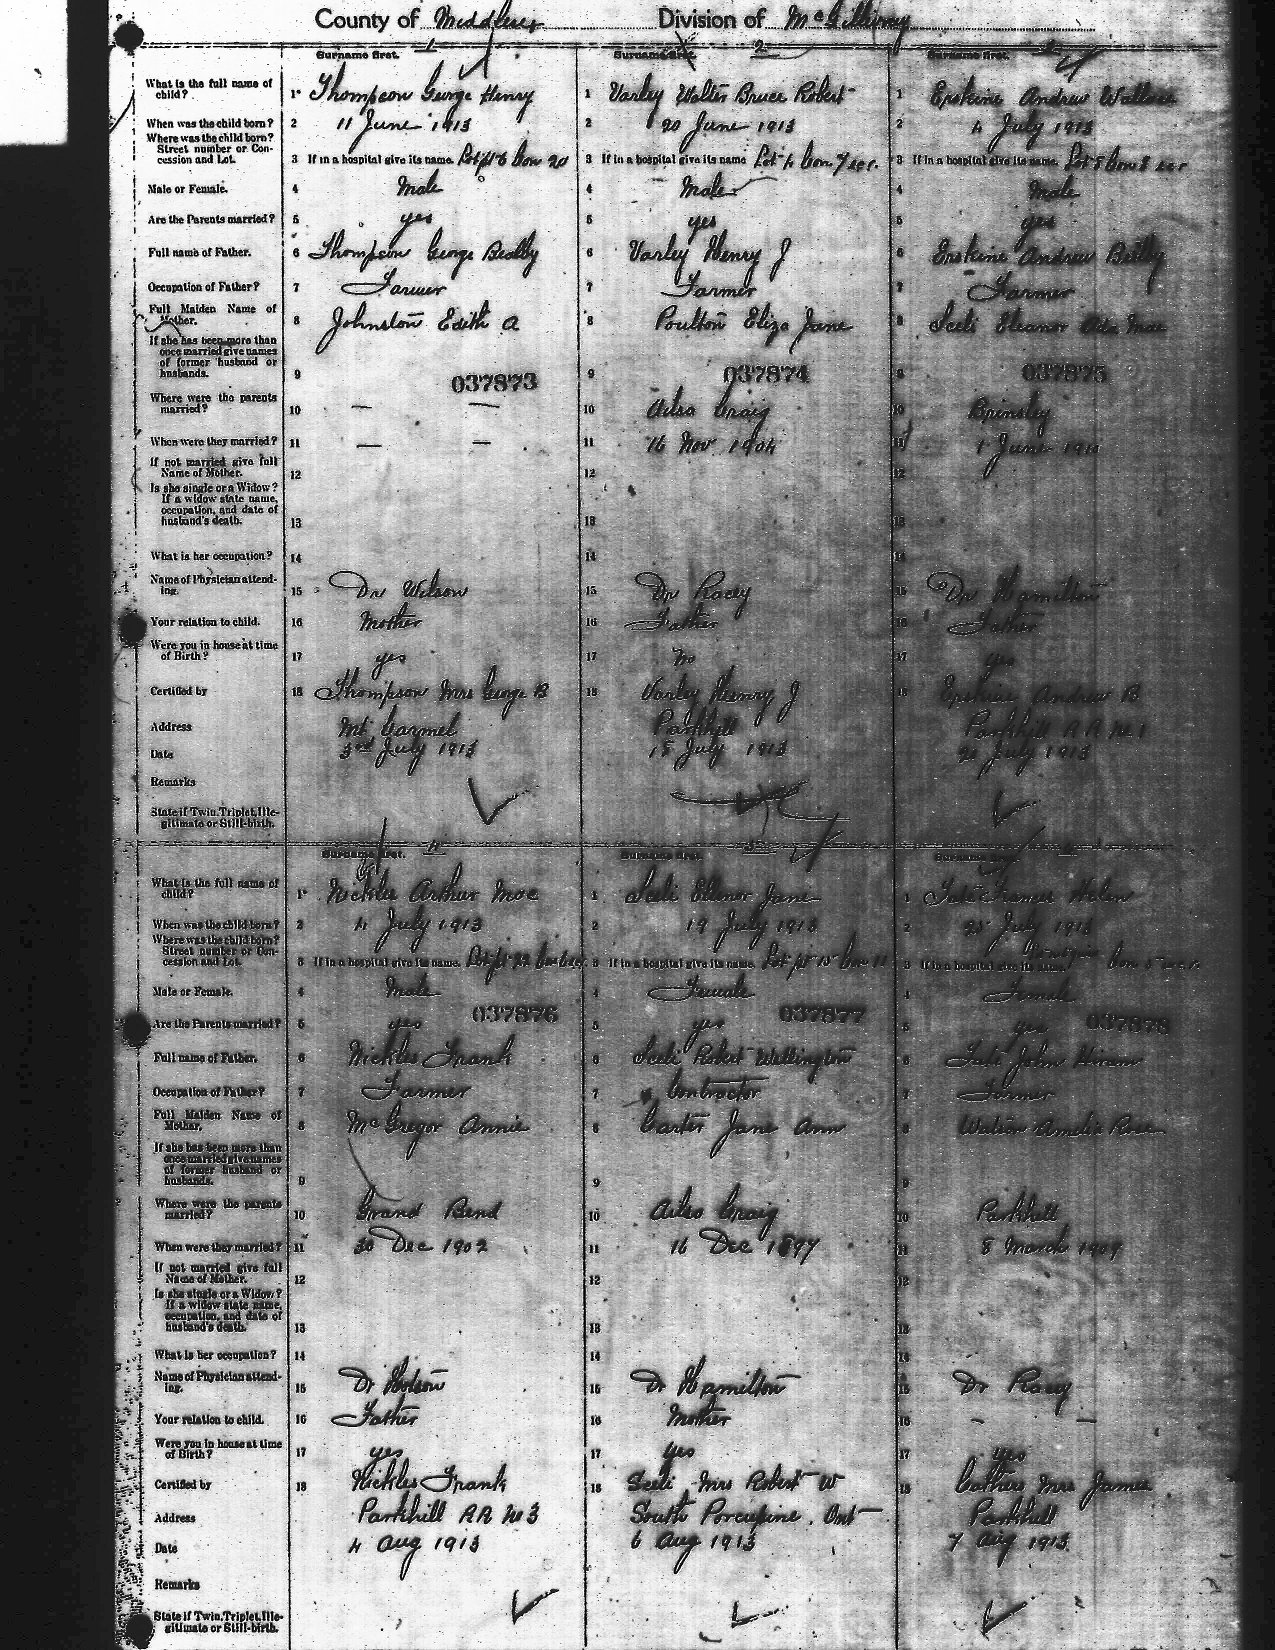 County of Middlesex Division of McGillivray
1 2 3
Surname first. Surname first. Surname first.
What is the full name of child? 1 Thompson George Henry 1 Varley Walter Bruce Robert 1 Erskine Andrew Wallace
When was the child born? 2 11 June 1913 2 20 June 1913 2 4 July 1913
Where was the child born?
Street number or Con-
cession and Lot. 3 If in a hospital give its name. Lot pt 6 Con 20 3 If in a hospital give its name Lot 4 Con. 7 3 If in a hospital give its name. Lot 8 Con 8
Male or Female. 4 Male 4 Male 4 Male
Are the Parents married? 5 yes 5 yes 5 yes
Full name of Father. 6 Thompson George 6 Varley Henry J 6 Erskine Andrew
Occupation of Father? 7 Farmer 7 Farmer 7 Farmer
Full Maiden Name of
Mother. 8 Johnston Edith A 8 Poulton Eliza Jane 8 Eleanor Mae
If she has been more than
once married give names
of former husband or
husbands. 9 037873 9 037874 9 037875
Where were the parents
married? 10 — — 10 Ailsa Craig 10 Brinsley
When were they married? 11 — — 11 16 Nov 1904 11 1 June
If not married give full
Name of Mother. 12 12 12
Is she single or a Widow?
If a widow state name,
occupation, and date of
husband's death. 13 13 13
What is her occupation? 14 14 14
Name of Physician attend-
ing. 15 Dr Wilson 15 Dr Racey 15 Dr Hamilton
Your relation to child. 16 Mother 16 Father 16 Father
Were you in house at time
of Birth? 17 yes 17 no 17 yes
Certified by 18 Thompson Mrs George B 18 Varley Henry J 18 Erskine Andrew B
Address Mt Carmel Parkhill Parkhill R R No 1
Date 3rd July 1913 18 July 1913 July 1913
Remarks
State if Twin, Triplet, Ille-
gitimate or Still-birth.
4 5
Surname first. Surname first. Surname first.
What is the full name of
child? 1 Nickles Arthur Moe 1 Ellenor Jane 1 Frances Helen
When was the child born? 2 4 July 1913 2 19 July 1913 2 July 1913
Where was the child born?
Street number or Con-
cession and Lot. 3 If in a hospital give its name. Lot pt 22 Con 3 If in a hospital give its name. Lot pt 15 Con 11 3 If in a hospital give its name. Con 5
Male or Female. 4 Male 4 Female 4 Female
Are the Parents married? 5 yes 037876 5 yes 037877 5 yes 037878
Full name of Father. 6 Nickles Frank 6 Robert Wellington 6 John Hiram
Occupation of Father? 7 Farmer 7 Contractor 7 Farmer
Full Maiden Name of
Mother. 8 McGregor Annie 8 Carter Jane Ann 8 Watson Amelia Rose
If she has been more than
once married give names
of former husband or
husbands. 9 9 9
Where were the parents
married? 10 Grand Bend 10 Ailsa Craig 10 Parkhill
When were they married? 11 30 Dec 1902 11 16 Dec 1897 11 8 March 1909
If not married give full
Name of Mother. 12 12 12
Is she single or a Widow?
If a widow state name,
occupation, and date of
husband's death. 13 13 13
What is her occupation? 14 14 14
Name of Physician attend-
ing. 15 Dr 15 Dr Hamilton 15 Dr Racey
Your relation to child. 16 Father 16 Mother 16 — —
Were you in house at time
of Birth? 17 yes 17 yes 17 yes
Certified by 18 Nickles Frank 18 Mrs Robert W 18 Mrs James
Address Parkhill RR No 3 South Porcupine. Ont Parkhill
Date 4 Aug 1913 6 Aug 1913 7 Aug 1913
Remarks
State if Twin, Triplet, Ille-
gitimate or Still-birth.